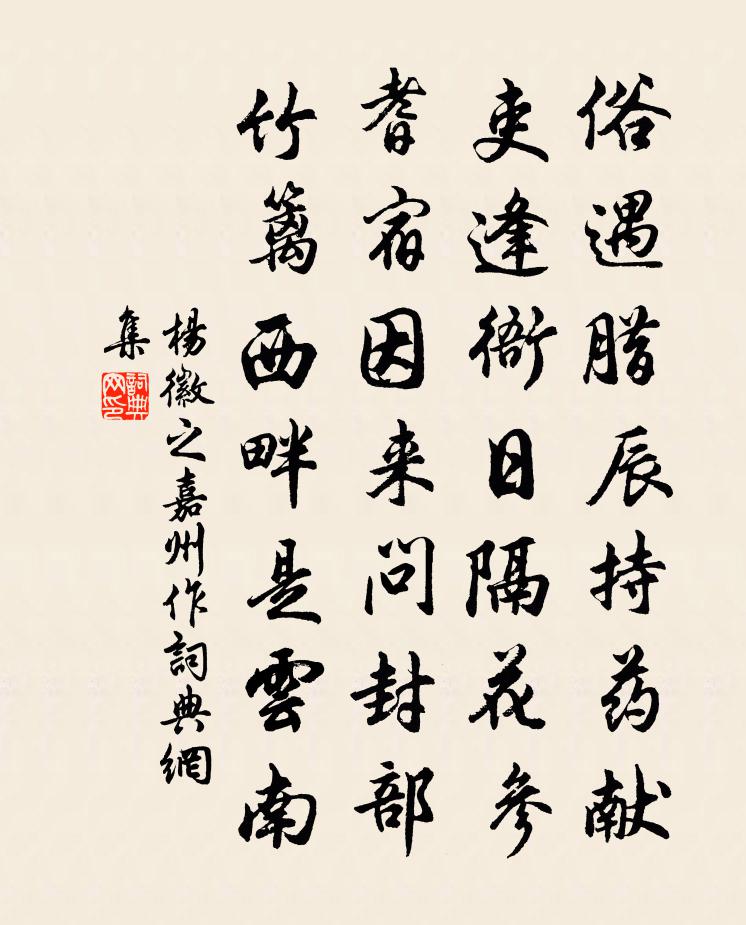 俗遇腊辰持药献
吏逢衙日隔花參
耆宿因来问封部
竹篱西畔是雲南
楊徽之嘉州作詞典網
集
詞典
网印